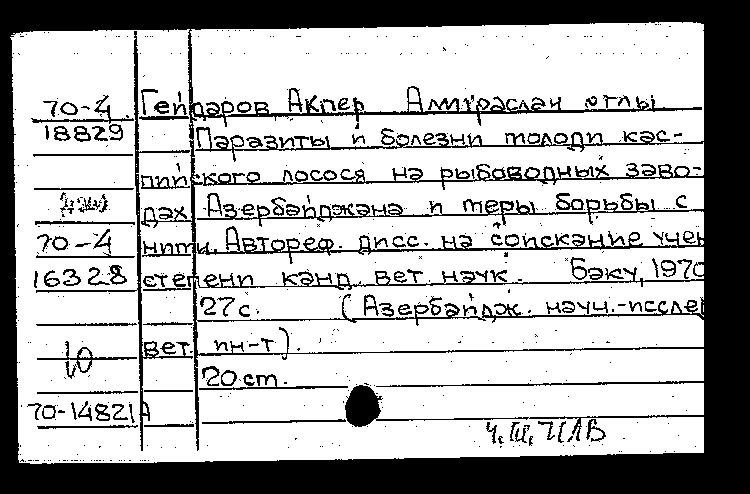 70-4 Гейдаров, Акпер Алмураслан оглы
18829 Паразиты и болезни молоди кас-
пийского лосося на рыбоводных заво-
дах Азербайджана и меры борьбы с
70-4 ними. Автореф. дисс. на соискание учен
16328 степени канд. вет. наук. Баку, 1970
27 с. (Азербайдж. науч.-исслед
10 вет. ин-т).
20 ст.
70-14821А